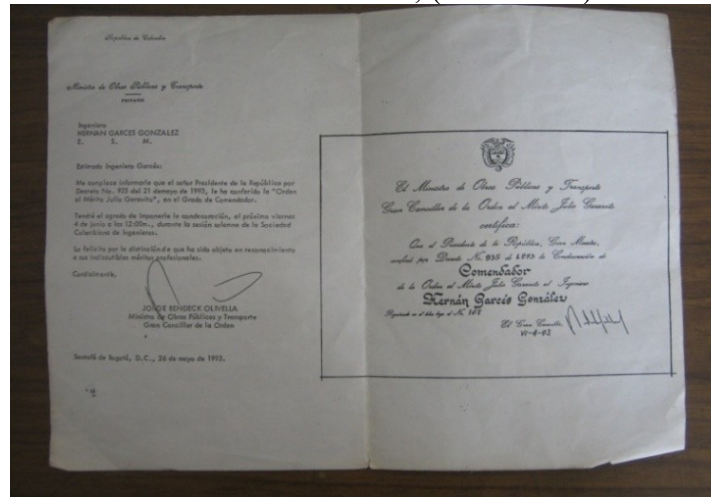 República de Colombia
Ministro de Obras Públicas y Transporte
PRIVADO
Ingeniero
HERNAN GARCES GONZALEZ
E. S. M.
Estimado Ingeniero Garcés:
Me complace informarle que el señor Presidente de la República por
Decreto No. 935 del 21 demayo de 1993, le ha conferido la "Orden
al Mérito Julio Garavito", en el Grado de Comendador.
Tendré el agrado de imponerle la condecoración, el próximo viernes
4 de junio a las 12:00m., durante la sesión solemne de la Sociedad
Colombiana de Ingenieros.
Lo felicito por la distinción de que ha sido objeto en reconocimiento
a sus indiscutibles méritos profesionales.
Cordialmente,
JORGE BENDECK OLIVELLA
Ministro de Obras Públicas y Transporte
Gran Canciller de la Orden
Santafé de Bogotá, D.C., 26 de mayo de 1993.
El Ministro de Obras Públicas y Transporte
Gran Canciller de la Orden al Mérito Julio Garavito
certifica:
Que el Presidente de la República, Gran Maestre,
confirió por Decreto No. 935 de 1.993 la Condecoración de
Comendador
de la Orden al Mérito Julio Garavito al Ingeniero
Hernán Garcés González
Registrado en el libro bajo el No.
El Gran Canciller,